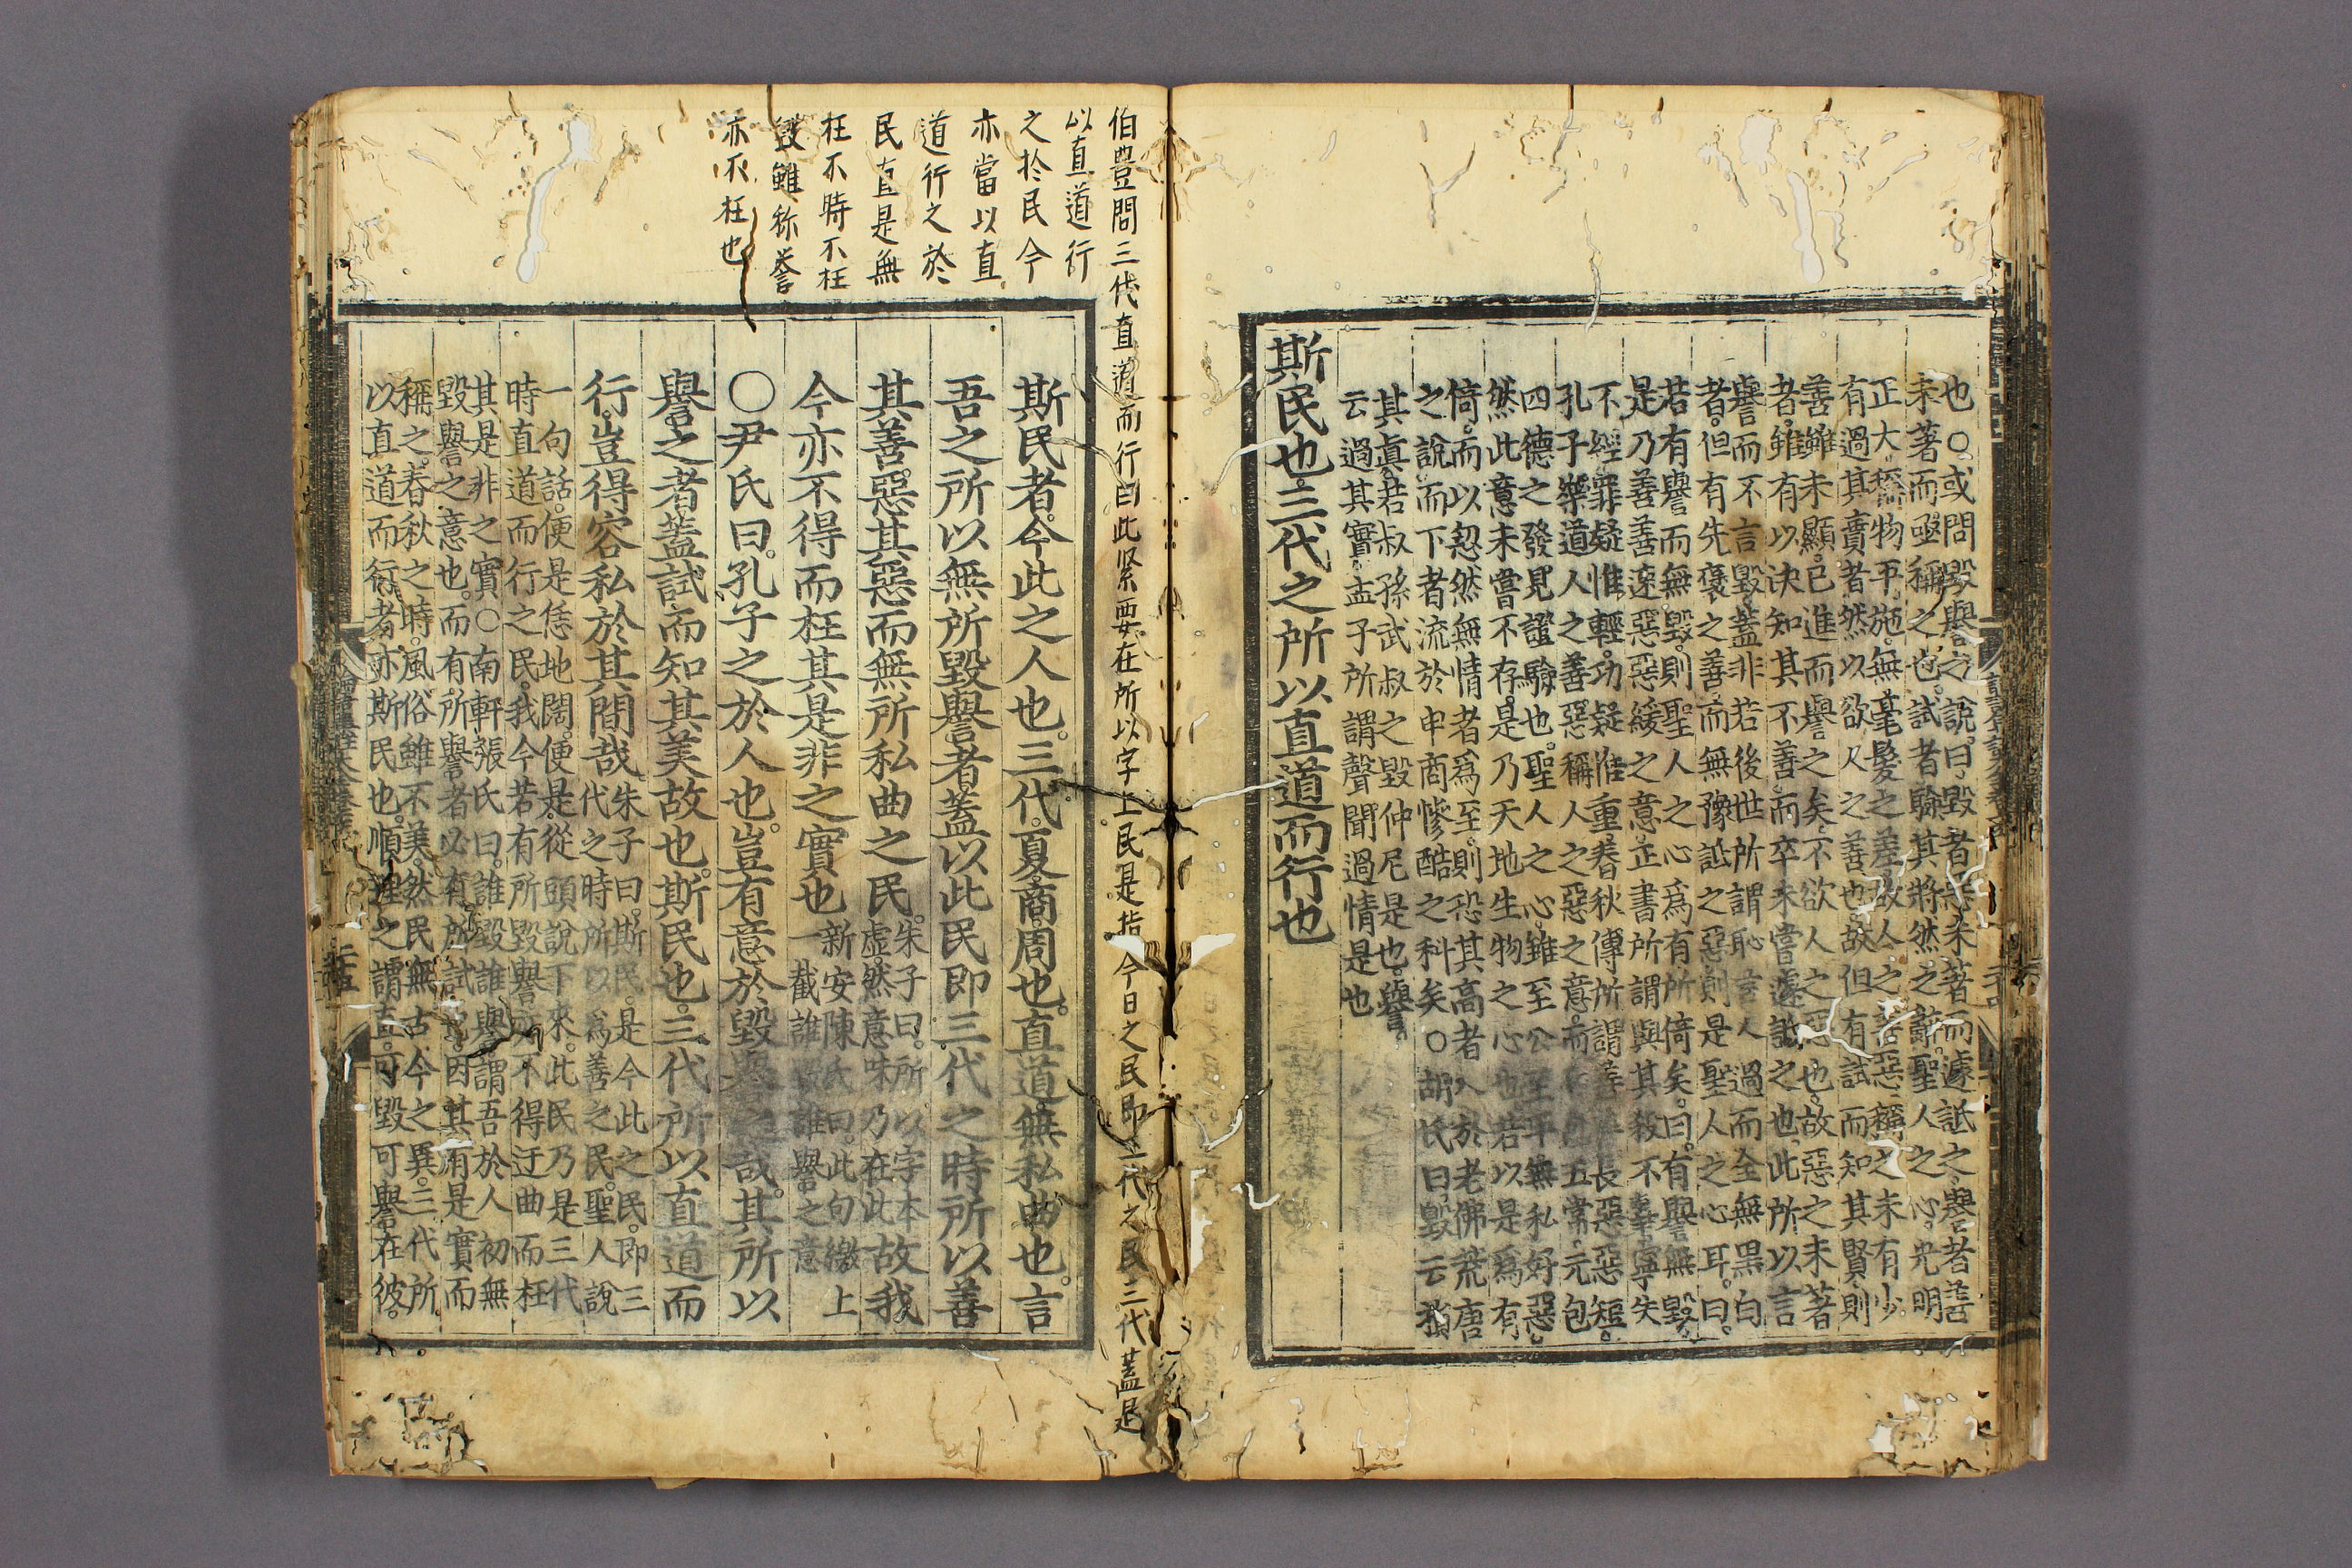 也○或問毀譽之說曰毀者惡未著而遽詆之譽者善
未著而亟稱之也試者驗其將然之辭聖人之心光明
正大稱物平施無毫髮之差故人之善惡稱之未有少
有過其實者然以欲人之善也故但有試而知其賢則
善雖未顯已進而譽之矣不欲人之惡也故惡之未著
者雖有以決知其不善而卒未嘗遽詆之也此所以言
譽而不言毀蓋非若後世所謂恥言人過而全無黑白
者但有先褒之善而無豫詆之惡則是聖人之心耳曰
若有譽而無毀則聖人之心爲有所倚矣曰有譽無毀
是乃善善速惡惡緩之意正書所謂與其殺不辜寧失
不經罪疑惟輕功疑惟重春秋傳所謂善善長惡惡短
孔子樂道人之善惡稱人之惡之意而五常元包
四德之發見證驗也聖人之心雖至公至平無私好惡
然此意未嘗不存是乃天地生物之心也若以是爲有
倚而以恝然無情者爲至則恐其高者入於老佛荒唐
之說而下者流於申商慘酷之科矣○胡氏曰毀云損
其眞若叔孫武叔之毀仲尼是也譽
云過其實孟子所謂聲聞過情是也
斯民也三代之所以直道而行也
伯豊問三代直道而行曰此緊要在所以字上民是指今日之民即三代之民三代蓋是
以直道行
之於民今
亦當以直
道行之於
民直是無
枉不時不枉
毀雖称誉
亦不枉也
斯民者今此之人也三代夏商周也直道無私曲也言
吾之所以無所毀譽者蓋以此民即三代之時所以善
其善惡其惡而無所私曲之民朱子曰所以字本
虛然意味乃在此故我
今亦不得而枉其是非之實也新安陳氏曰此句繳上
一截誰毀誰譽之意
○尹氏曰孔子之於人也豈有意於毀譽之哉其所以
譽之者蓋試而知其美故也斯民也三代所以直道而
行豈得容私於其間哉朱子曰斯民是今此之民即三
代之時所以爲善之民聖人說
一句話便是恁地闊便是從頭說下來此民乃是三代
時直道而行之民我今若有所毀譽亦不得迂曲而枉
其是非之實○南軒張氏曰誰毀誰譽謂吾於人初無
毀譽之意也而有所譽者必有所試因其有是實而
稱之春秋之時風俗雖不美然民無古今之異三代所
以直道而行者亦斯民也順理之謂直可毀可譽在彼